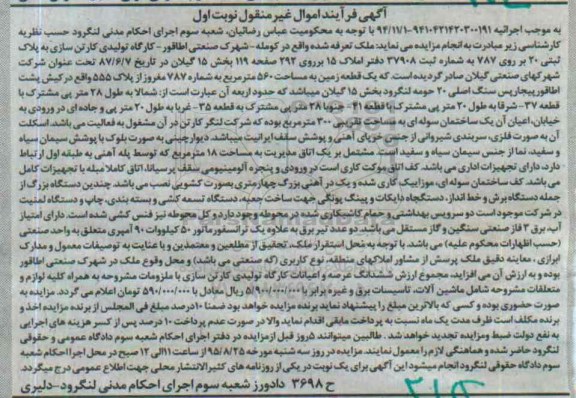 آگهی فرآیند اموال غیر منقول نوبت اول
به موجب اجرائیه ۹۴۱۰۴۲۱۴۲۰۳۰۰۱۹۱-۹۴/۱۱/۱ با توجه به محکومیت عباس رضائیان، شعبه سوم اجرای احکام مدنی لنگرود حسب نظریه
کارشناسی زیر مبادرت به انجام مزایده می نماید: ملک تعرفه شده واقع در کومله - شهرک صنعتی اطاقور - کارگاه تولیدی کارتن سازی به پلاک
ثبتی ۲۰ بر روی ۷۸۷ به شماره ثبت ۳۷۹۰۸ دفتر املاک ۱۵ برروی ۲۹۲ صفحه ۱۱۹ بخش ۱۵ گیلان در تاریخ ۸۷/۶/۷ تحت عنوان شرکت
شهرکهای صنعتی گیلان صادر گردیده است. که یک قطعه زمین به مساحت ۵۶۰ مترمربع به شماره ۷۸۷ مفروز از پلاک ۵۵۵ واقع در کیش پشت
اطاقور پیجارپس سنگ اصلی ۲۰ حومه لنگرود بخش ۱۵ گیلان میباشد که حدود اربعه آن عبارت است از: شمالا به طول ۲۸ متر پی مشترک با
قطعه ۳۷ - شرقا به طول ۲۰ متر پی مشترک با قطعه ۴۱ - جنوبا ۲۸ متر پی مشترک به قطعه ۳۵ - غربا به طول ۲۰ متر پی و جاده ای در ورودی به
خیابان، اعیان آن یک ساختمان سوله ای به مساحت تقریبی ۳۰۰ مترمربع بوده که شرکت لنگر کارتن در آن مشغول به فعالیت می باشد. اسکلت
آن به صورت فلزی، سربندی شیروانی از جنس خرپای آهنی و پوشش سقف ایرانیت میباشد. دیوارچینی به صورت بلوک با پوشش سیمان سیاه
و سفید، نما از جنس سیمان سیاه و سفید است. مشتمل بر یک اتاق مدیریت به مساحت ۱۸ مترمربع که توسط پله آهنی به طبقه اول ارتباط
دارد. دارای تجهیزات اداری می باشد. کف اتاق موکت کاری است در ورودی و پنجره آلومینیومی سقف پرسیانا، اتاق کاملا مبله با تجهیزات کامل
می باشد. کف ساختمان سوله ای، موزاییک کاری شده و یک در آهنی بزرگ چهارمتری بصورت کشویی نصب می باشد. چندین دستگاه بزرگ از
جمله دستگاه برش و خط انداز، دستگاه دایکات و پینگ پونگی جهت ساخت جعبه، دستگاه تسمه کشی و بسته بندی، چاپ و دستگاه لمنیت
در شرکت موجود است دو سرویس بهداشتی و حمام کاشیکاری شده در محوطه وجود دارد و کل محوطه نیز فنس کشی شده است. دارای امتیاز
آب، برق ۳ فاز صنعتی سنگین و گاز مستقل می باشد. دو عدد تیر برق به علاوه یک ترانسفورماتور ۵۰ کیلووات ۹۰ آمپری متعلق به واحد صنعتی
(حسب اظهارات محکوم علیه) می باشد. با توجه به محل استقرار ملک، تحقیق از مطلعین و معتمدین و با عنایت به توصیفات معمول و مدارک
ابرازی، معاینه دقیق ملک پرسش از مشاور املاکهای منطقه، نوع کاربری (که صنعتی می باشد) و محل وقوع ملک در شهرک صنعتی اطاقور
بوده و به ارزش آن می افزاید، مجموع ارزش ششدانگ عرصه و اعیانات کارگاه تولیدی کارتن سازی با ملزومات مشروحه به همراه کلیه لوازم و
متعلقات مشروحه شامل ماشین آلات، تاسیسات برق و غیره برابر با ۵/۹۰۰/۰۰۰/۰۰۰ ریال معادل با ۵۹۰/۰۰۰/۰۰۰ تومان اعلام می گردد. مزایده به
صورت حضوری بوده و کسی که بالاترین مبلغ را پیشنهاد نماید برنده مزایده خواهد بود ضمنا ۱۰ درصد مبلغ فی المجلس از برنده مزایده اخذ و
برنده مکلف است ظرف مدت یک ماه نسبت به پرداخت مابقی اقدام نماید والا در صورت عدم پرداخت ۱۰ درصد پس از کسر هزینه های اجرایی
به نفع دولت ضبط و مزایده تجدید خواهد شد. طالبین میتوانند ۵ روز قبل از مزایده در محل اجرای احکام شعبه سوم دادگاه عمومی و حقوقی
لنگرود حاضر شده و هماهنگی لازم را معمول نمایند. مزایده در روز سه شنبه مورخه ۹۵/۸/۲۵ از ساعت ۱۱ الی ۱۲ صبح در محل اجرا احکام شعبه
سوم دادگاه حقوقی لنگرود انجام میشود این آگهی برای یک نوبت در یکی از روزنامه های کثیرالانتشار محلی جهت اطلاع عمومی درج میگردد.
ح ۳۶۹۸ دادورز شعبه سوم اجرای احکام مدنی لنگرود - دلیری